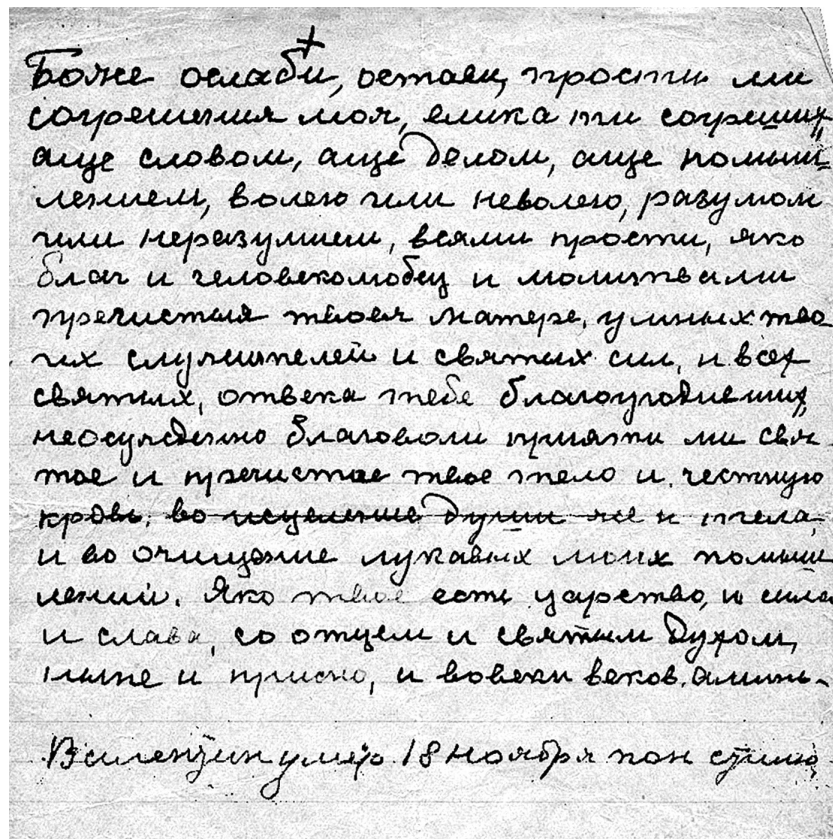 Боже ослаби, остави, прости ми
согрешения моя, елика ти согреших
аще словом, аще делом, аще помыш=
лением, волею или неволею, разумом
или неразумием, вся ми прости, яко
благ и человеколюбец и молитвами
пречистыя твоея матере, умных тво
их служителей и святых сил, и всех
святых, от века тебе благоугодивших,
неосужденно благоволи прияти ми свя
тое и пречистое твое тело и честную
кровь, во исцеление души же и тела,
и во очищение лукавых моих помыш
лений. Яко твое есть царство, и сила
и слава, со отцем и святым духом,
ныне и присно, и вовеки веков. аминь.
Валентин умер 18 ноября по н стилю